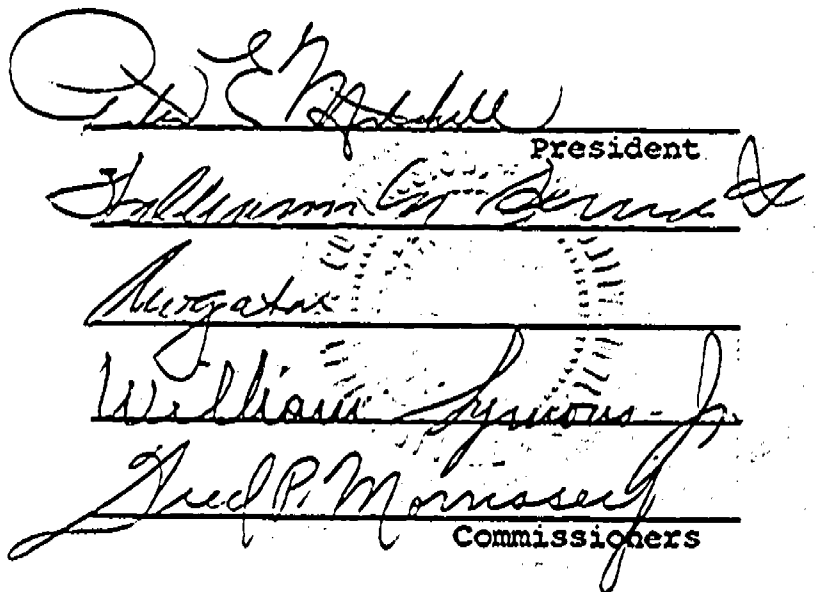 Peter E Mitchell
President
William M Bennett
Gatov
William Symons Jr.
Fred P. Morrissey
Commissioners